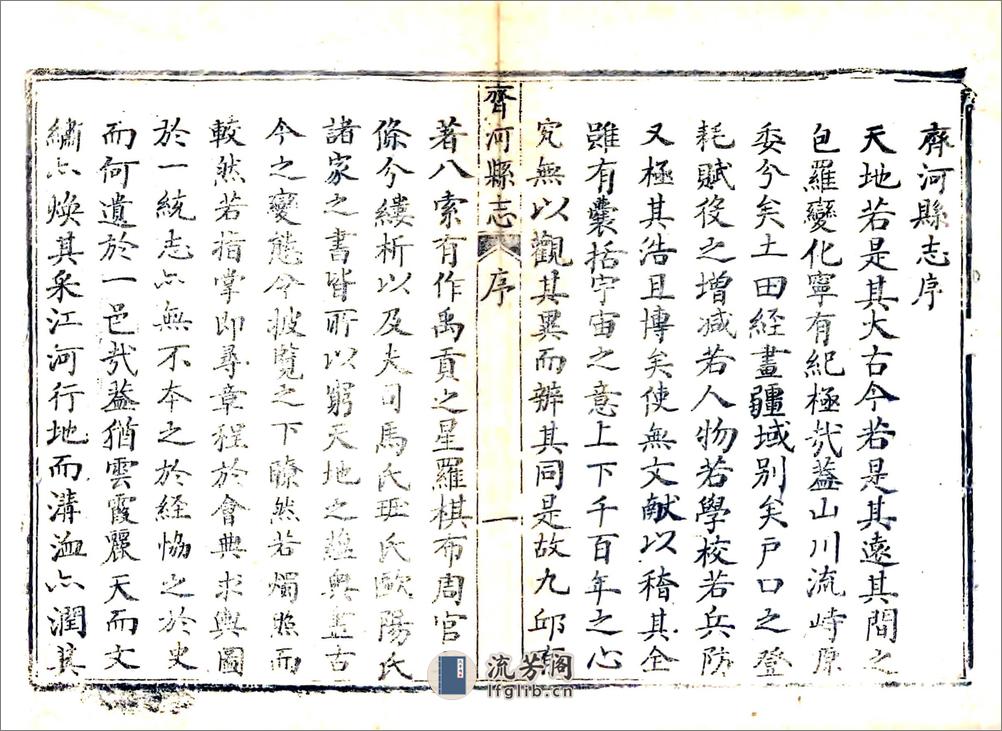 齊河縣志序
天地若是其大古今若是其遠其間之
包羅變化寧有紀極㢤葢山川流峙原
委兮矣土田經畫疆域別矣戸口之登
耗賦役之增減若人物若學校若兵防
又極其浩且博矣使無文献以稽其全
雖有囊括宇宙之意上下千百年之心
究無以觀其異而辨其同是故九邱有
齊河縣志
序
一
著八索有作禹貢之星羅棋布周官
條分縷析以及夫司馬氏班氏歐陽氏
諸家之書皆所以窮天地之藴與盡古
今之變態今披覽之下瞭然若燭照而
較然若指掌即尋章程於會典求輿圖
於一統志亦無不本之於経恊之於史
而何遺於一邑㢤葢猶雲霞麗天而文
繡亦煥其采江河行地而溝洫亦潤其
流芳阁
lfglib.cn